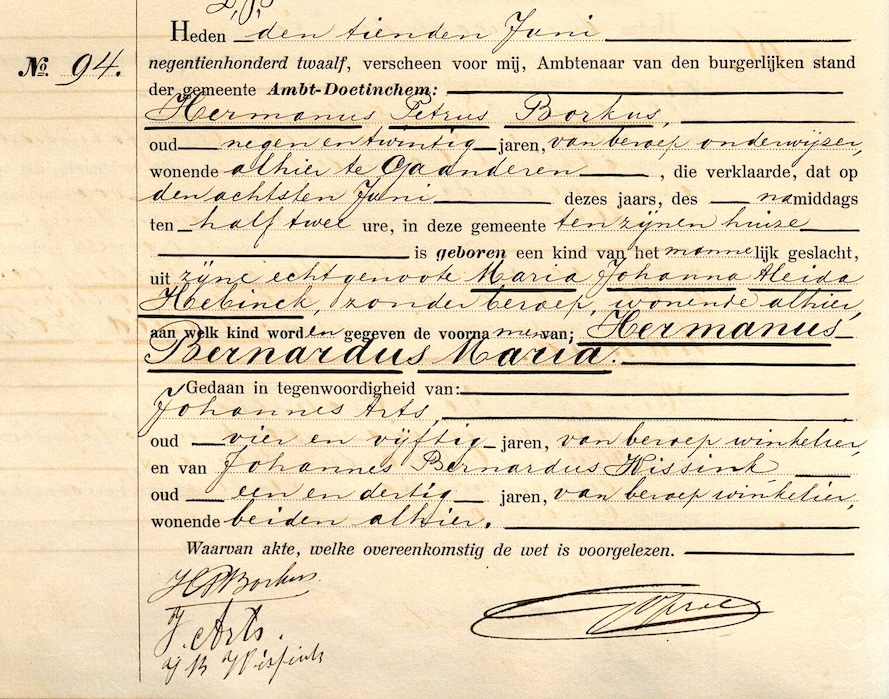 Heden den tienden Juni
No. 94.
negentienhonderd twaalf, verscheen voor mij, Ambtenaar van den burgerlijken stand
der gemeente Ambt-Doetinchem:
Hermanus Petrus Borkus,
oud negen en twintig jaren, van beroep onderwijzer,
wonende alhier te Gaanderen, die verklaarde, dat op
den achtsten Juni dezes jaars, des namiddags
ten half twee ure, in deze gemeente ten zijnen huize
is geboren een kind van het mannelijk geslacht,
uit zijne echtgenoote Maria Johanna Aleida
Hebinck, zonder beroep, wonende alhier,
aan welk kind worden gegeven de voornamen van; Hermanus
Bernardus Maria.
Gedaan in tegenwoordigheid van:
Johannes Arts,
oud vier en vijftig jaren, van beroep winkelier,
en van Johannes Bernardus Hissink
oud een en dertig jaren, van beroep winkelier,
wonende beiden alhier.
Waarvan akte, welke overeenkomstig de wet is voorgelezen.
HPBorkus.
J. Arts.
J B Hissink